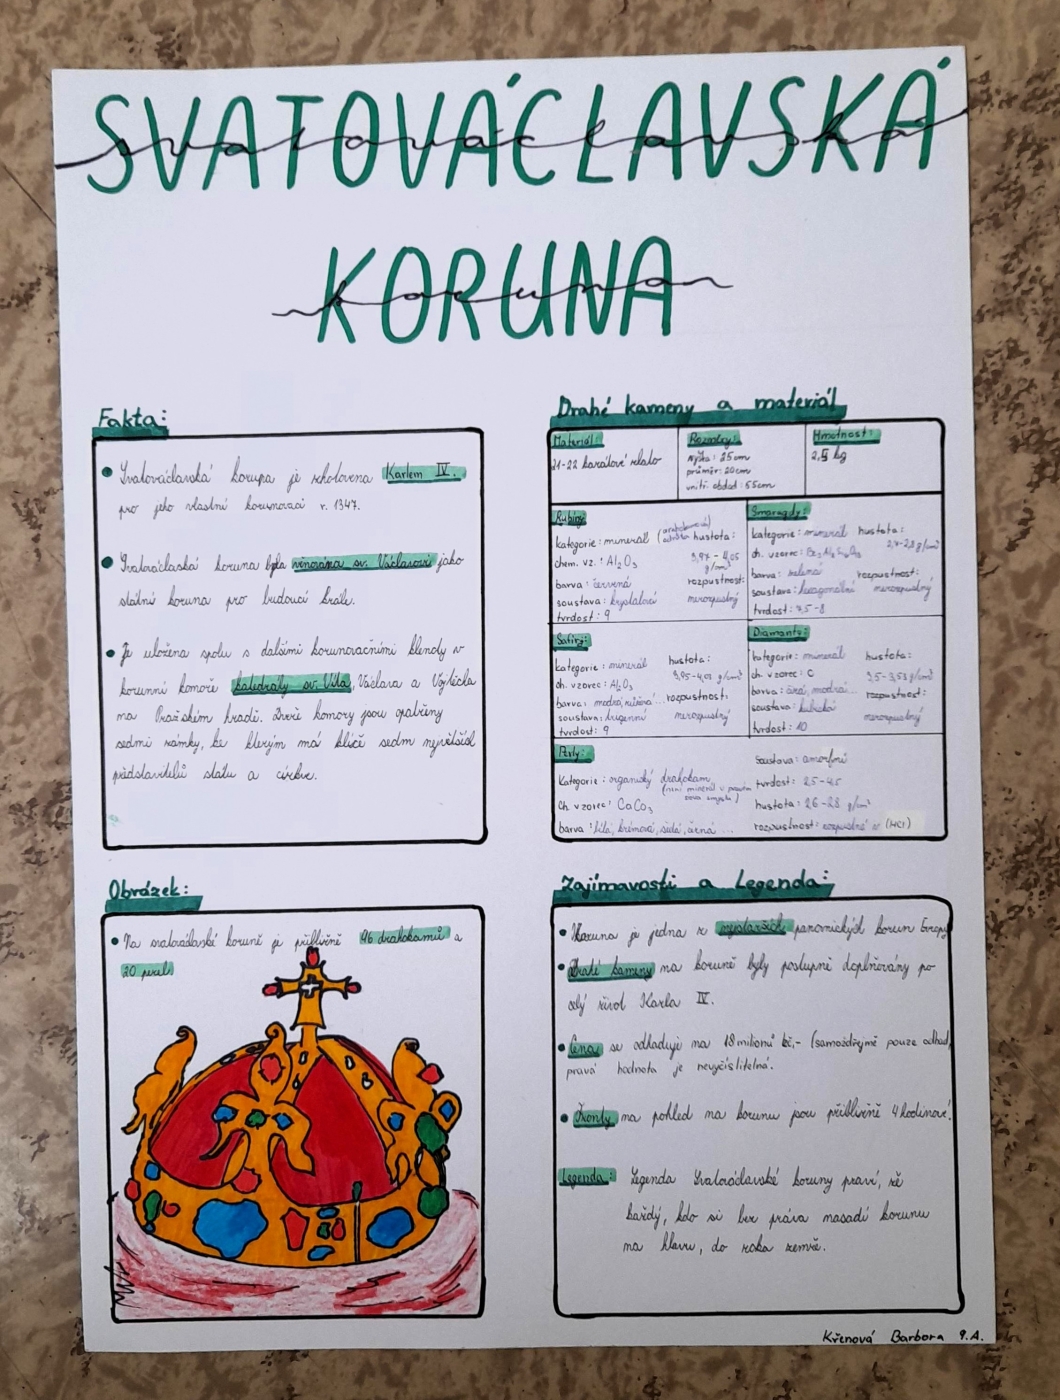 SVATOVÁCLAVSKÁ
svatováclavská
KORUNA
koruna
Fakta:
Svatováclavská koruna je zhotovena Karlem IV.
pro jeho vlastní korunovaci r. 1347.
Svatováclavská koruna byla věnována sv. Václavovi jako
státní koruna pro budoucí krále.
Je uložena spolu s dalšími korunovačními klenoty v
korunní komoře katedrály sv. Víta, Václava a Vojtěcha
na Pražském hradě. Dveře komory jsou opatřeny
sedmi zámky, ke kterým má klíče sedm nejvyšších
představitelů státu a církve.
Drahé kameny a materiál
Materiál:
21-22 karátové zlato
Rozměry:
výška: 25cm
průměr: 20cm
vnitř. obvod: 55cm
Hmotnost:
2,5 kg
Rubíny:
kategorie: minerál
hustota:
chem. vz.: Al₂O₃
3,97 - 4,05
g/cm³
barva: červená
rozpustnost:
soustava: krystalová
nerozpustný
tvrdost: 9
Smaragdy:
kategorie: minerál
hustota:
2,7-2,8 g/cm³
ch. vzorec:
barva: zelená
rozpustnost:
soustava: hexagonální
nerozpustný
tvrdost: 7,5-8
Safíry:
kategorie: minerál
hustota:
ch. vzorec: Al₂O₃
3,95-4,03 g/cm³
barva: modrá, růžová...
rozpustnost:
soustava: trigonální
nerozpustný
tvrdost: 9
Diamanty:
kategorie: minerál
hustota:
ch. vzorec: C
3,5-3,53 g/cm³
barva: čirá, modrá...
rozpustnost:
soustava: kubická
nerozpustný
tvrdost: 10
Perly:
kategorie: organický drahokam
(není minerál v pravém
slova smyslu)
ch. vzorec: CaCO₃
barva: bílá, krémová, šedá, černá...
soustava: amorfní
tvrdost: 2,5-4,5
hustota: 2,6-2,8 g/cm³
rozpustnost: rozpustné v (HCl)
Obrázek:
Na svatováclavské koruně je přibližně 96 drahokamů a
20 perel.
Zajímavosti a Legenda:
Koruna je jedna z nejstarších panovnických korun Evropy
Drahé kameny na koruně byly postupně doplňovány po
celý život Karla IV.
Cena se odhaduje na 18 milionů kč,- (samozdřejmě pouze odhad,
pravá hodnota je nevyčíslitelná.
Fronty na pohled na korunu jsou přibližně 4 hodinové.
Legenda: Legenda Svatováclavské koruny praví, že
každý, kdo si bez práva nasadí korunu
na hlavu, do roka zemře.
Křenová Barbora 9.A.